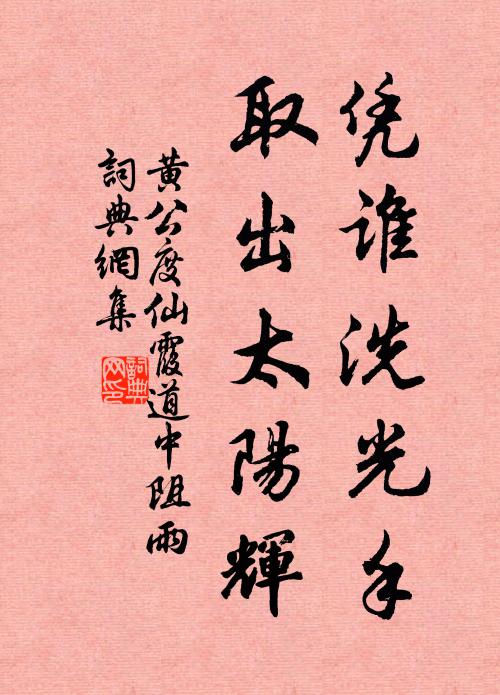 凭谁洗光手
取出太陽輝
黃公度仙霞道中阻雨
詞典網集
詞典網印